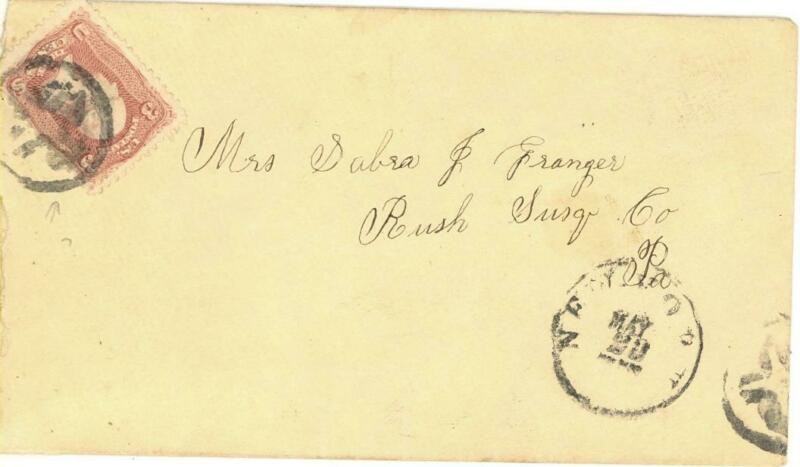 Mrs Sabra J Franger
Rush Susq Co
Pa
NEW YORK
MAY
20